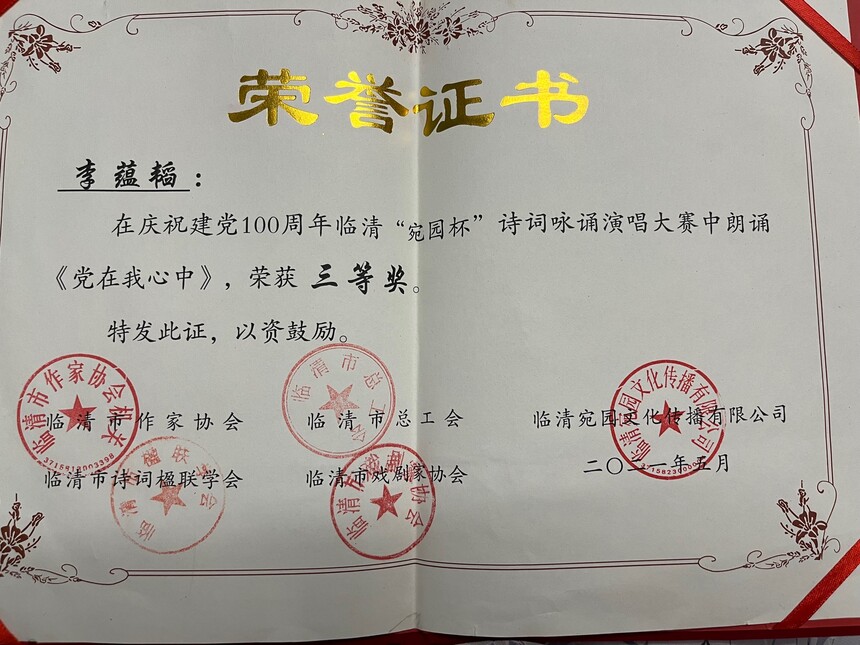 荣誉证书
李蕴韬：
在庆祝建党100周年临清“宛园杯”诗词咏诵演唱大赛中朗诵
《党在我心中》，荣获 三等奖。
特发此证，以资鼓励。
临清市作家协会 临清市总工会 临清宛园文化传播有限公司
临清市诗词楹联学会 临清市戏剧家协会 二〇二一年五月
临清市总工会
临清宛园文化传播有限公司